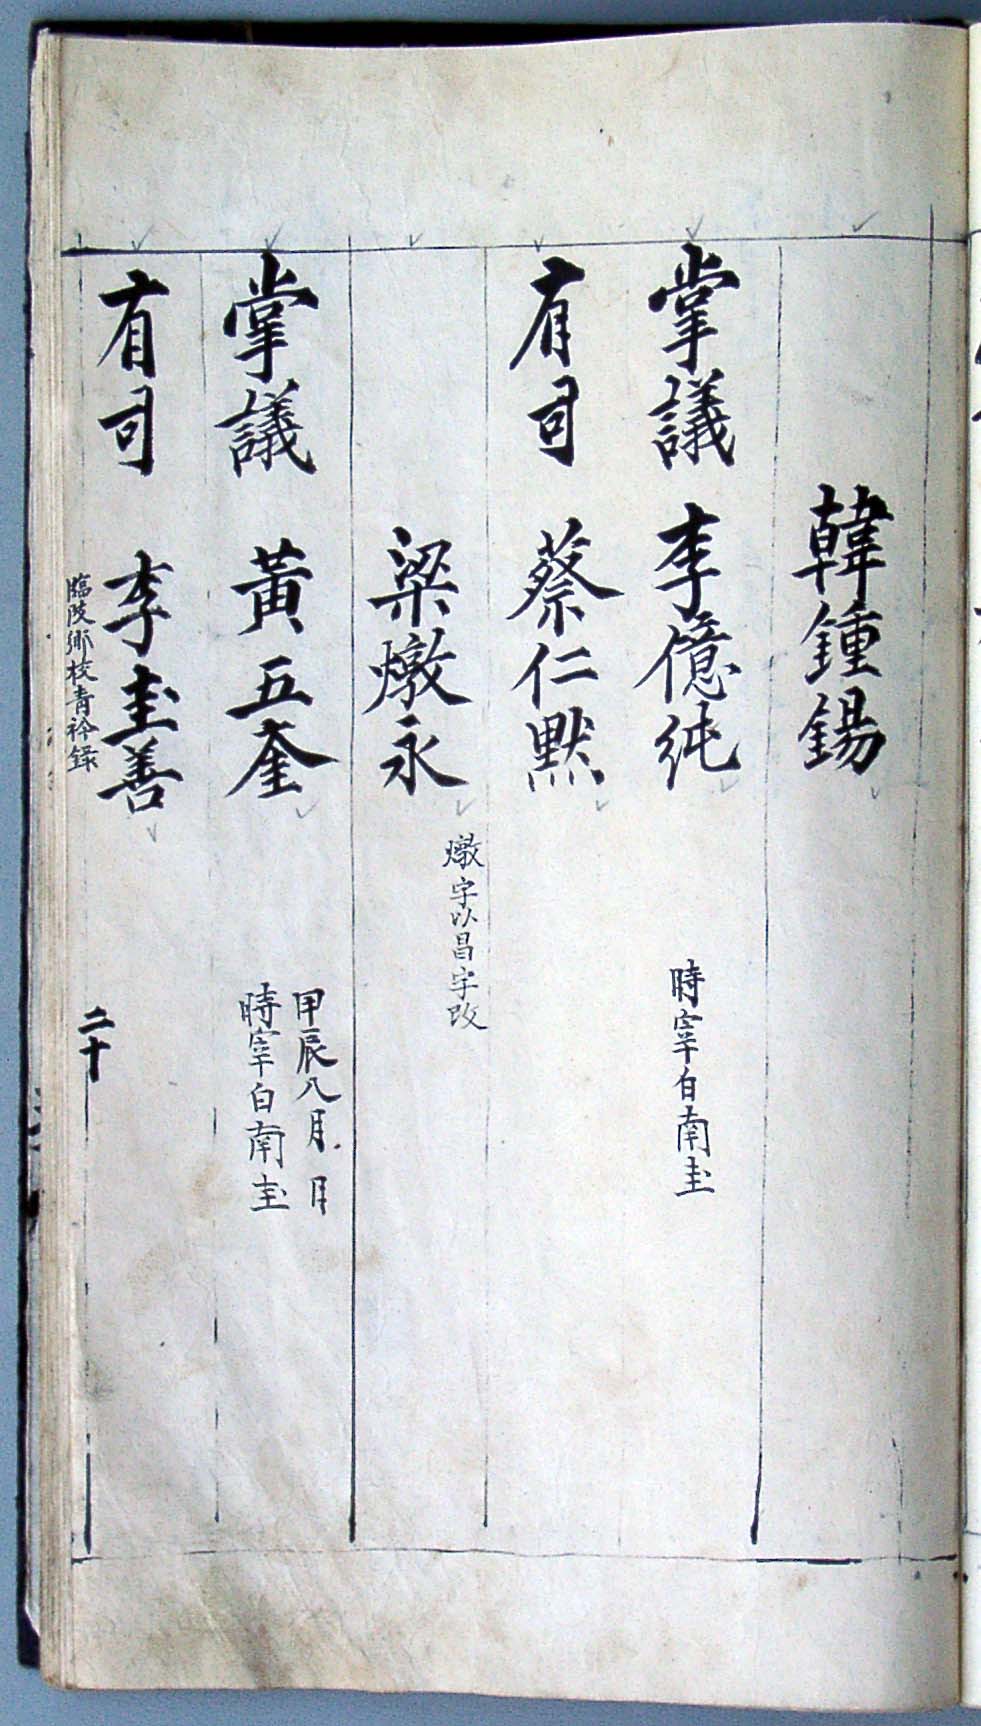 韓鍾錫
掌議 李億純 時宰白南圭
有司 蔡仁默
梁燉永 燉字以昌字改
掌議 黃五奎 甲辰八月 日
時宰白南圭
有司 李圭善
臨陂鄕校靑衿錄
二十